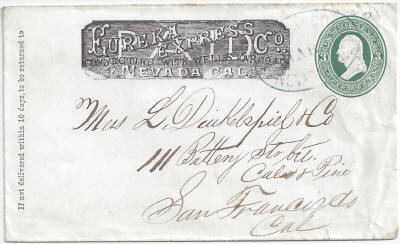 EUREKA
EXPRESS CO.
PAID
CONNECTING WITH WELLS FARGO & CO
NEVADA CAL.
U.S. POSTAGE
3 3
THREE CENTS
If not delivered within 10 days, to be returned to
Mess L. Dinkelspiel & Co
111 Battery St. bet.
Cala & Pine
San Francisco
Cal